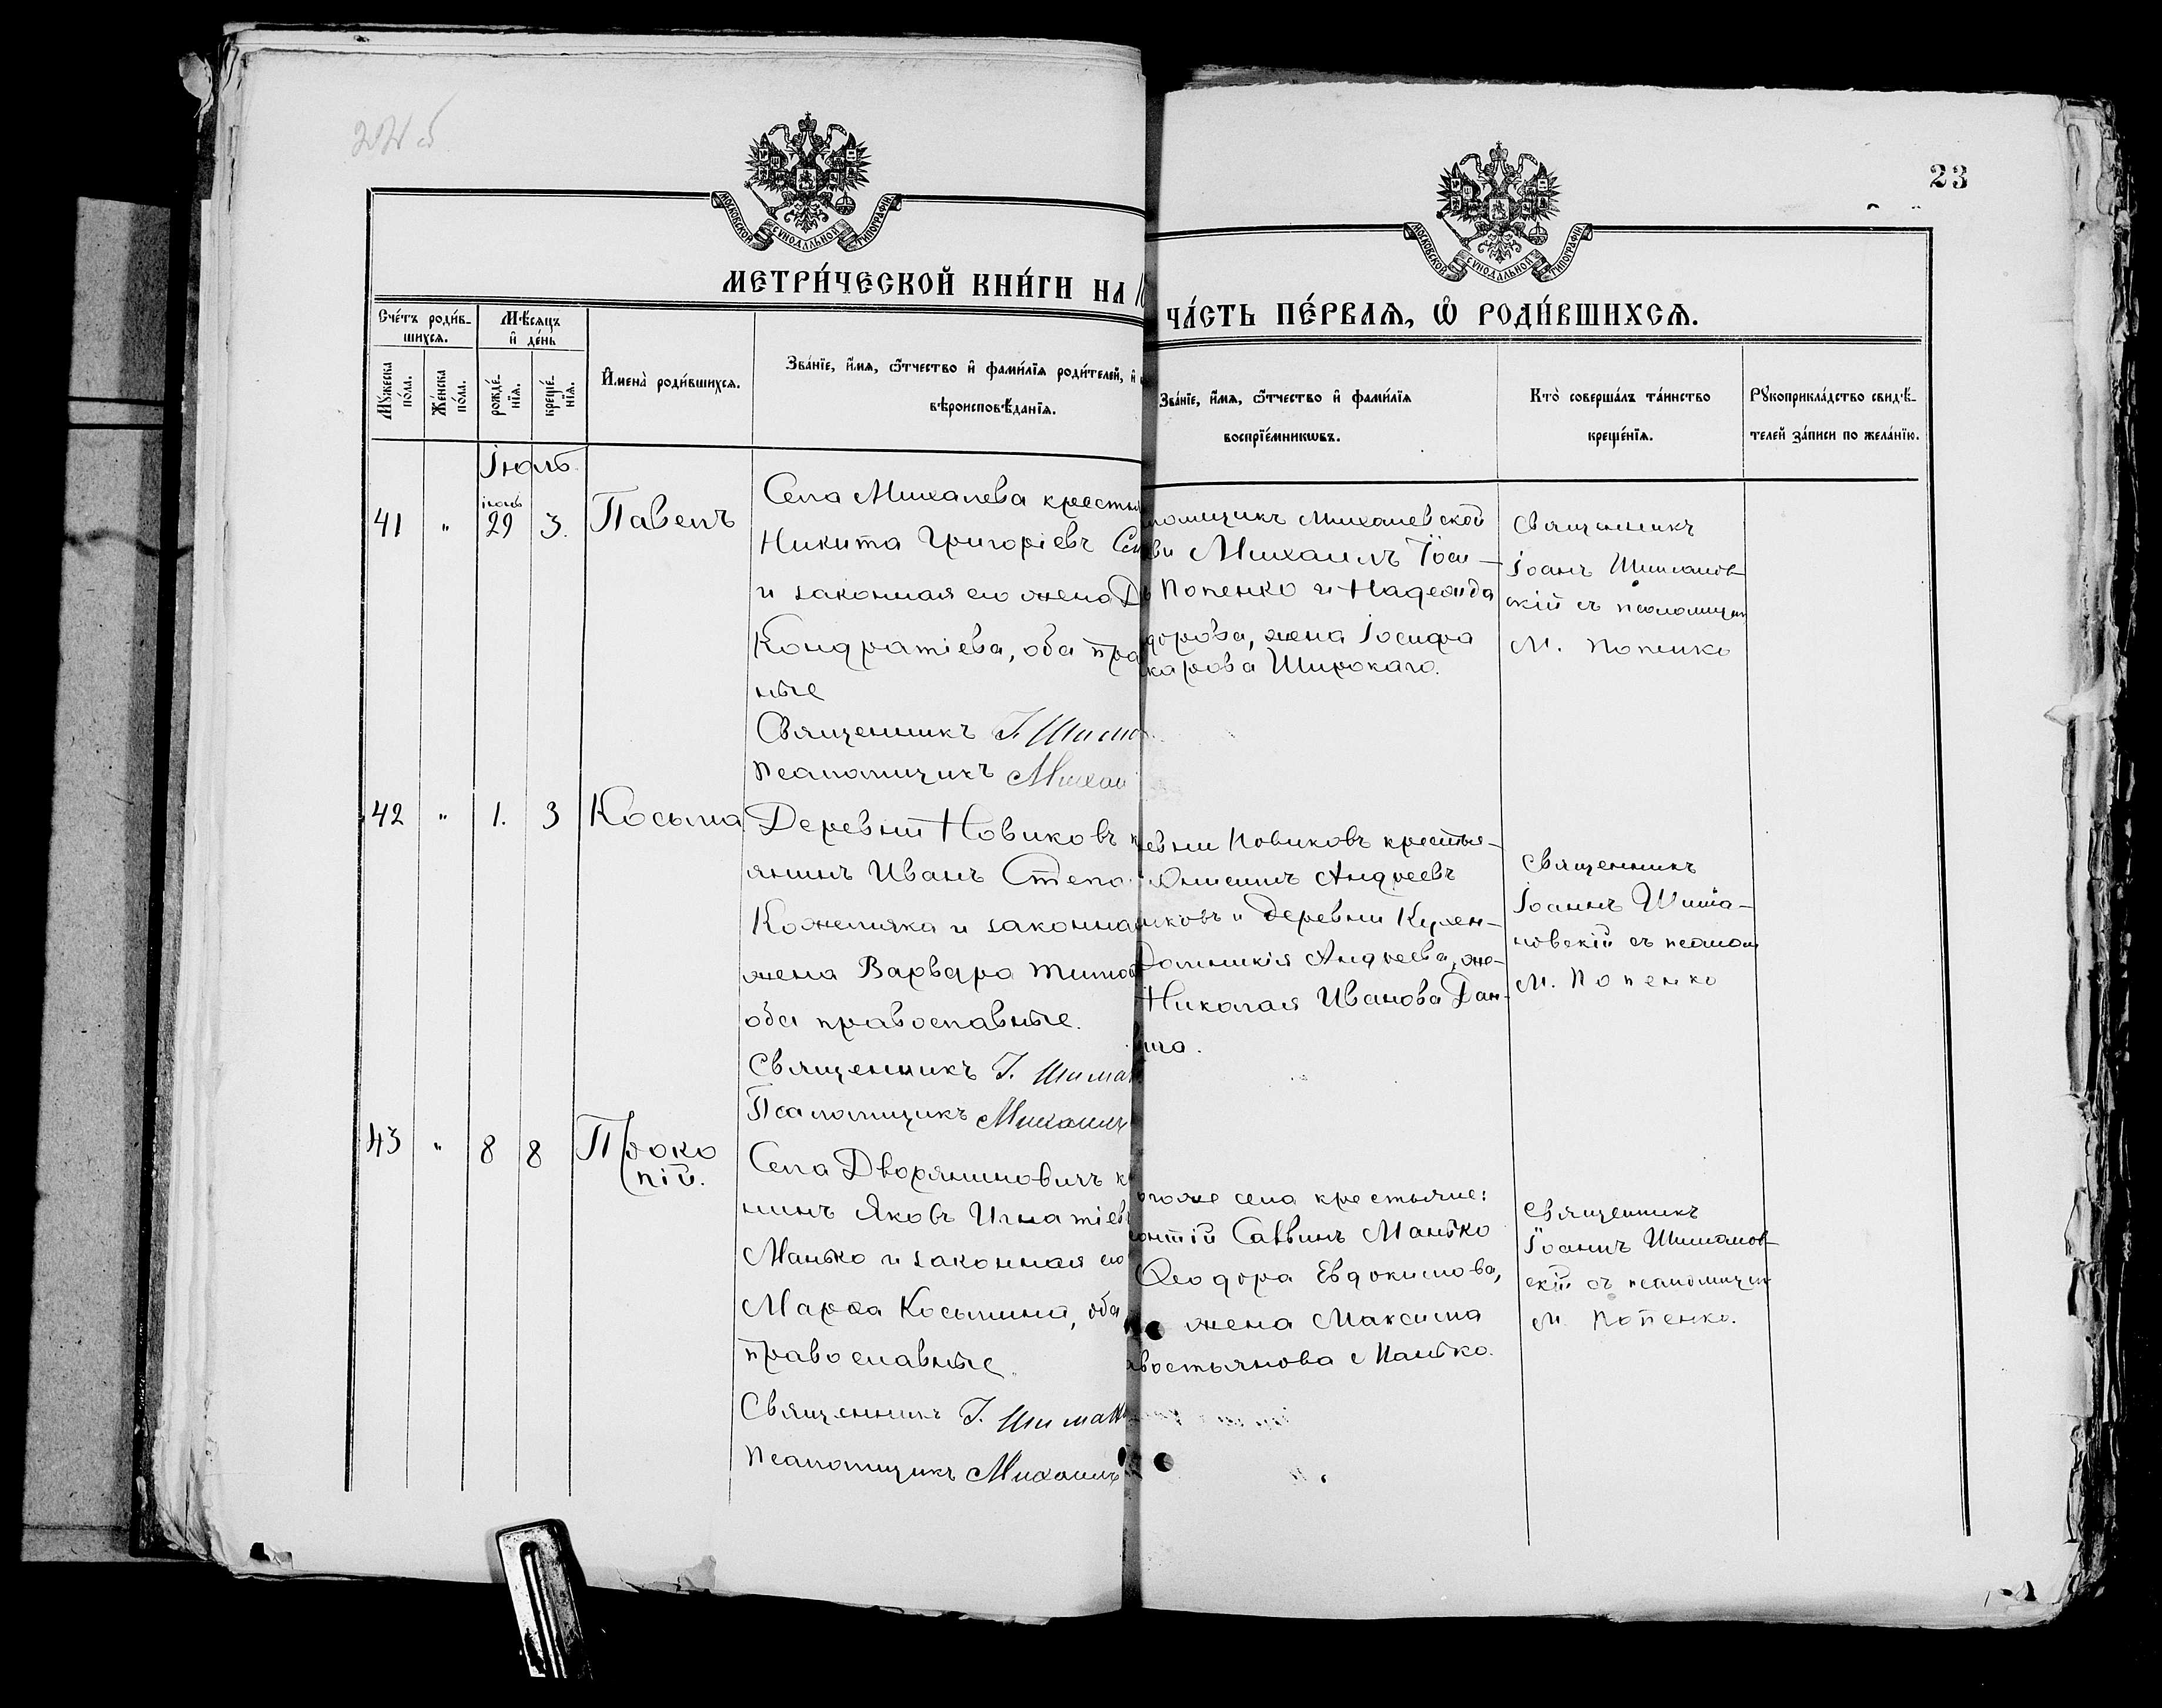 23
МОСКОВСКОЙ СУНОДАЛЬНОЙ ТИПОГРАФІИ
МОСКОВСКОЙ СУНОДАЛЬНОЙ ТИПОГРАФІИ
МЕТРИ́ЧЕСКОЙ КНИ́ГИ НА
ЧА́СТЬ ПЕ́РВАѦ, Ѽ РОДИ́ВШИХСѦ.
Сче́тъ роди́в-
шихсѧ.
Мѣ́сѧцъ
и҆ де́нь
Мꙋ́жеска по́ла.
Же́нска по́ла.
рожде́-нїѧ.
креще́-нїѧ.
И҆мена̀ роди́вшихсѧ.
Зва́нїе, и҆́мѧ, ѻ҆́тчество и҆ фами́лїѧ роди́телей, и҆
вѣроисповѣ́данїѧ.
Зва́нїе, и҆́мѧ, ѻ҆́тчество и҆ фами́лїѧ
воспрїе́мникѡвъ.
Кто̀ соверша́лъ та́инство
креще́нїѧ.
Рꙋкоприкла́дство свидѣ́-
телей за́писи по жела́нїю.
Іюль
41 " іюнь 29 3. Павелъ
Села Михалева кресть
Никита Григоріевъ Се
и законная его жена Д
Кондратіева, оба пра
ные
Священникъ І. Шима
Псаломщикъ Михаи
ломщикъ Михалевской
ви Михаилъ Іоси-
ъ Попенко и Надежда
дорова, жена Іосифа
карова Широкаго.
Священникъ
Іоанъ Шиманов-
скій съ псаломщик
М. Попенко
42 " 1. 3 Косьма
Деревни Новиковъ к
янинъ Иванъ Степа
Кожемяка и законна
жена Варвара Титов
оба православные.
Священникъ І. Шиман
Псаломщикъ Михаилъ
евни Новиковъ крестья-
Онисимъ Андреевъ
иковъ и деревни Кухен-
Домникія Андреева, же-
Николая Иванова Дан-
Священникъ
Іоаннъ Шима-
новскій съ псалом
М. Попенко
43 " 8 8 Проко
пій.
Села Дворяниновичъ к
нинъ Яковъ Игнатіев
Манько и законная его
Марѳа Косьмина, оба
православные.
Священникъ І. Шиман
Псаломщикъ Михаилъ
огоже села крестьяне:
онтій Саввинъ Манько
Ѳеодора Евдокимова,
жена Максима
авостьянова Манько.
Священникъ
Іоаннъ Шиманов-
скій съ псаломщик
М. Попенко.